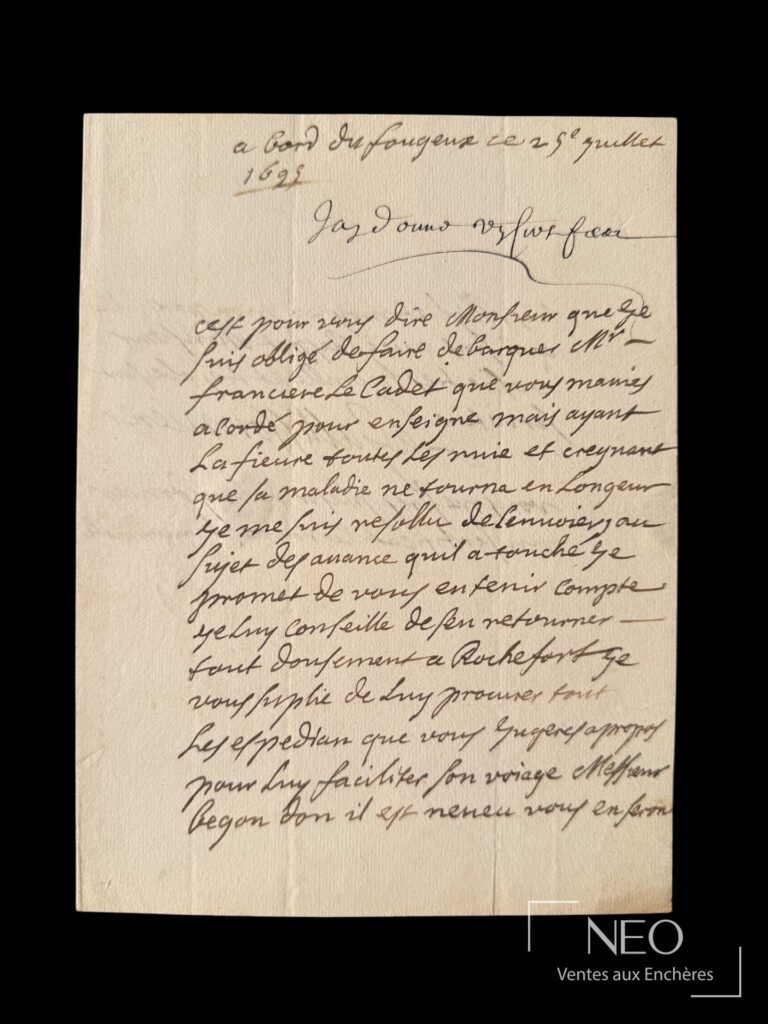 a bord du fougeux ce 25e Juillet
1695
Jay donné
cest pour vous dire Monsieur que Je
suis obligé de faire debarquer Mr
franciere Le Cadet que vous mavies
acordé pour enseigne mais ayant
La fievre toutes Les nuie et creynant
que sa maladie ne tourna en Longeur
Je me suis resollu de Lenvoier au
sujet des avance quil a touché Je
promet de vous en tenir Compte
Je Luy Conseille de sen retourner
tout dousement a Rochefort Je
vous suplie de Luy procurer tout
Les espedian que vous Jugeres apropos
pour Luy faciliter son voiage Messieur
begon don il est neveu vous en seron
NEO
Ventes aux Enchères